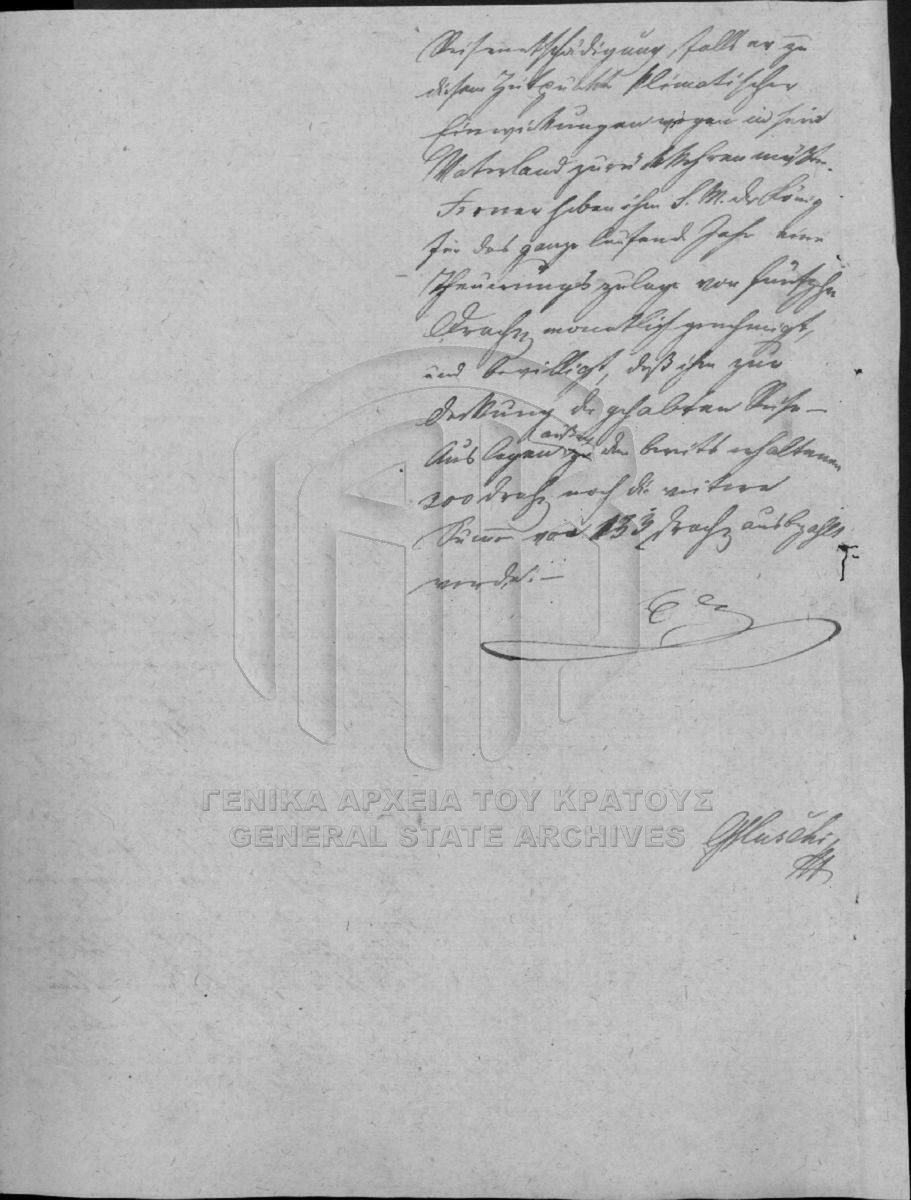 Reiseentschädigung, falls er zu
diesem Zeitpunkte klimatischer
Einwirkungen wegen in sein
Vaterland zurückkehren müßte.
Ferner haben ihm S. M. der König
für das ganze laufende Jahr eine
Theuerungszulage von fünfzehn
Drach. monatlich genehmigt,
und bewilligt, daß ihm zur
Deckung der gehabten Reise-
Auslagen außer den bereits erhaltenen
200 Drach. noch die weitere
Summe von 133 Drach. ausbezahlt
werde. —
ΓΕΝΙΚΑ ΑΡΧΕΙΑ ΤΟΥ ΚΡΑΤΟΥΣ
GENERAL STATE ARCHIVES